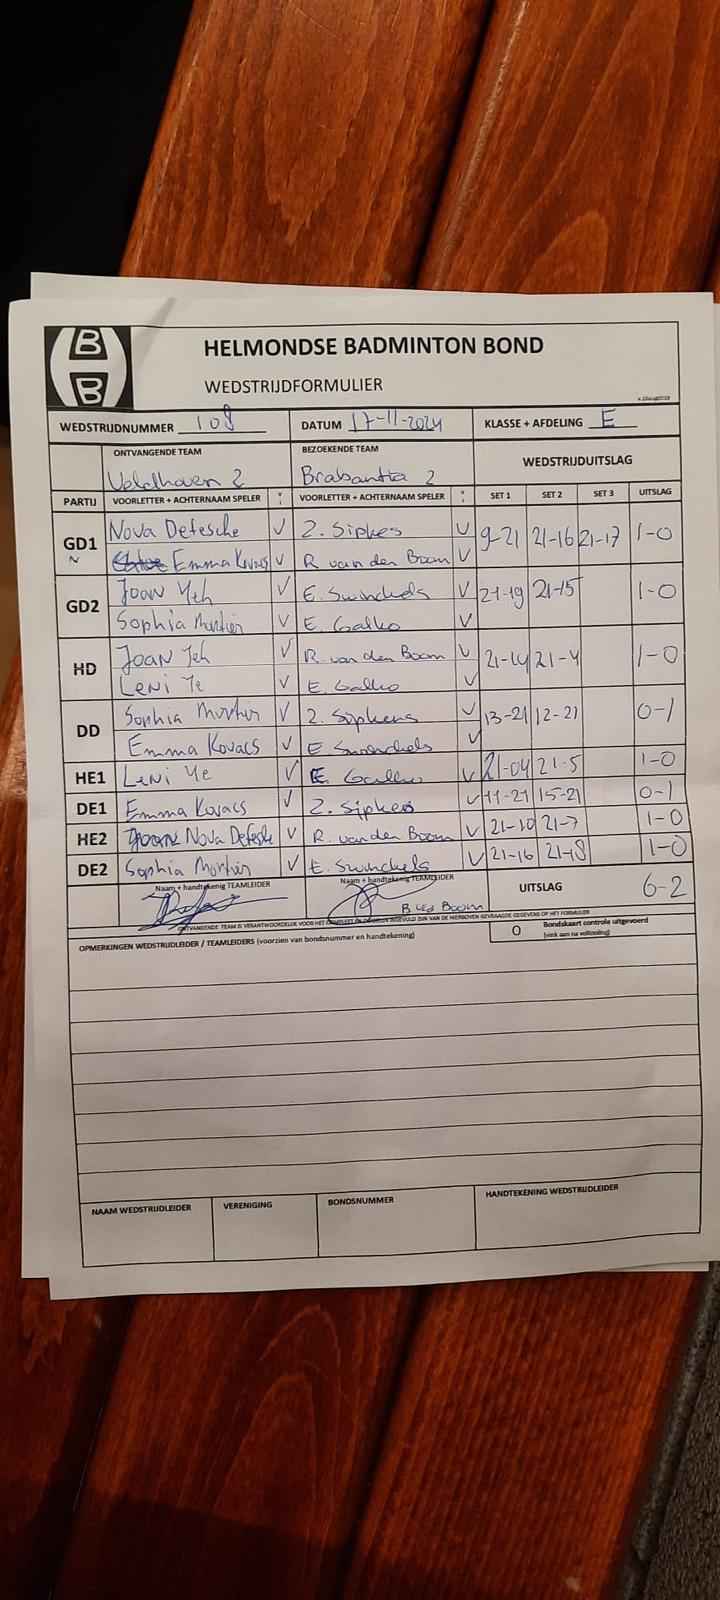 H
B
B
HELMONDSE BADMINTON BOND
WEDSTRIJDFORMULIER
WEDSTRIJDNUMMER 108 DATUM 17-11-2024 KLASSE + AFDELING E
ONTVANGENDE TEAM BEZOEKENDE TEAM WEDSTRIJDUITSLAG
Veldhoven 2 Brabantia 2
PARTIJ VOORLETTER + ACHTERNAAM SPELER VOORLETTER + ACHTERNAAM SPELER SET 1 SET 2 SET 3 UITSLAG
GD1 Nova Defesche V Z. Sipkes V 9-21 21-16 21-17 1-0
N Emma Kovacs V R van den Boom V
GD2 Joan Yeh V E. Swinckels V 21-19 21-15 1-0
Sophia Mortier V E. Galko V
HD Joan Yeh V R. van den Boom V 21-14 21-4 1-0
Leni Ye V E. Galko V
DD Sophia Mortier V Z. Sipkens V 13-21 12-21 0-1
Emma Kovacs V E Swinckels V
HE1 Leni Ye V E. V 21-04 21-5 1-0
DE1 Emma Kovacs V Z. Sipkes V 11-21 15-21 0-1
HE2 Nova Defesche V R. van den Boom V 21-10 21-7 1-0
DE2 Sophia Mortier V E. Swinckels V 21-16 21-18 1-0
Naam + handtekening TEAMLEIDER Naam + handtekening TEAMLEIDER UITSLAG 6-2
R vd Boom
ONTVANGENDE TEAM IS VERANTWOORDELIJK VOOR HET COMPLEET EN INGEVULD ZIJN VAN DE HIERBOVEN GEVRAAGDE GEGEVENS OP HET FORMULIER
OPMERKINGEN WEDSTRIJDLEIDER / TEAMLEIDERS (voorzien van bondsnummer en handtekening) O Bondskaart controle uitgevoerd
(vink aan na voltooiing)
NAAM WEDSTRIJDLEIDER VERENIGING BONDSNUMMER HANDTEKENING WEDSTRIJDLEIDER